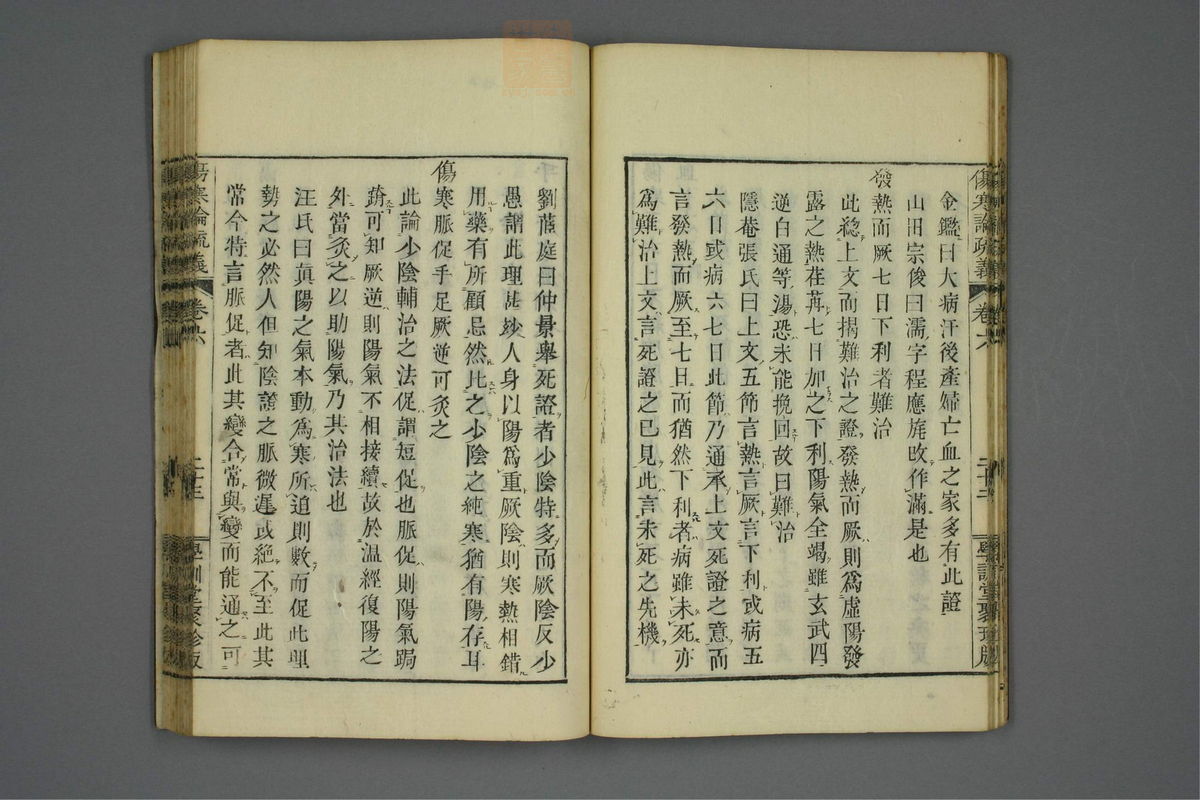 傷寒論疏義 卷六 二十三 學訓堂聚珍版
金鑑曰大病汗後產婦亡血之家多有此證
山田宗俊曰濡字程應旄攺作滿是也
發熱而厥七日下利者難治
此稔上文而揭難治之證發熱而厥則爲虛陽發
露之熱荏苒七日加之下利陽氣全竭雖玄武四
逆白通等湯恐未能挽回故曰難治
隱菴張氏曰上文五節言熱言厥言下利或病五
六日或病六七日此節乃通承上文死證之意而
言發熱而厥至七日而猶然下利者病雖未死亦
爲難治上文言死證之已見此言未死之先機
劉茝庭曰仲景舉死證者少陰特多而厥陰反少
愚謂此理甚妙人身以陽爲重厥陰則寒熱相錯
用藥有所顧忌然比之少陰之純寒猶有陽存耳
傷寒脈促手足厥逆可灸之
此論少陰輔治之法促謂短促也脈促則陽氣跼
蹐可知厥逆則陽氣不相接續故於温經復陽之
外當灸之以助陽氣乃其治法也
汪氏曰眞陽之氣本動爲寒所迫則數而促此理
勢之必然人但知陰證之脈微遲或絶不至此其
常今特言脈促者此其變合常與變而能通之可
傷寒論疏義 卷六 二十三 學訓堂聚珍版